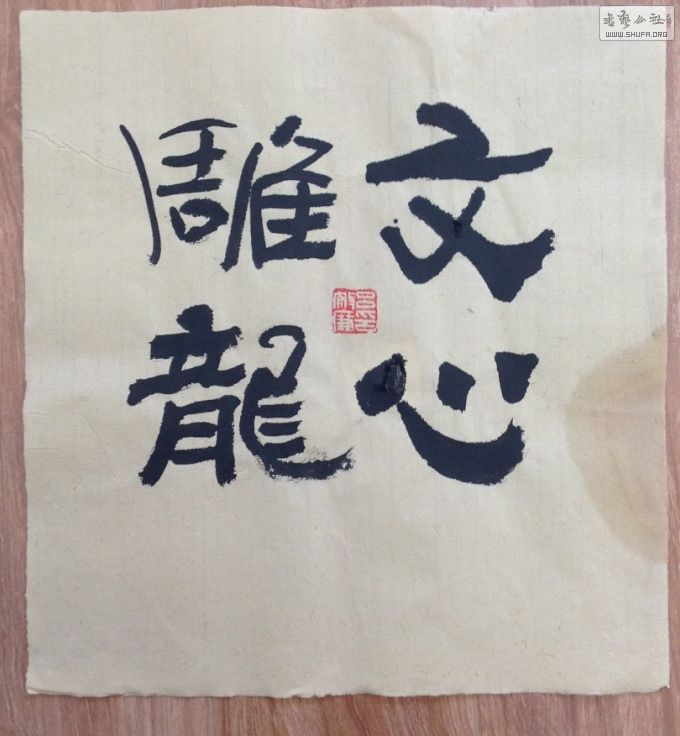 文心
雕龍
書藝公社
WWW.SHUFA.ORG